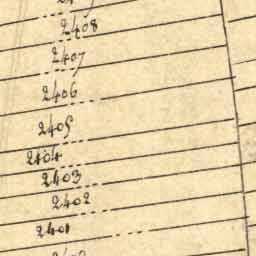 2408
2407
2406
2405
2404
2403
2402
2401